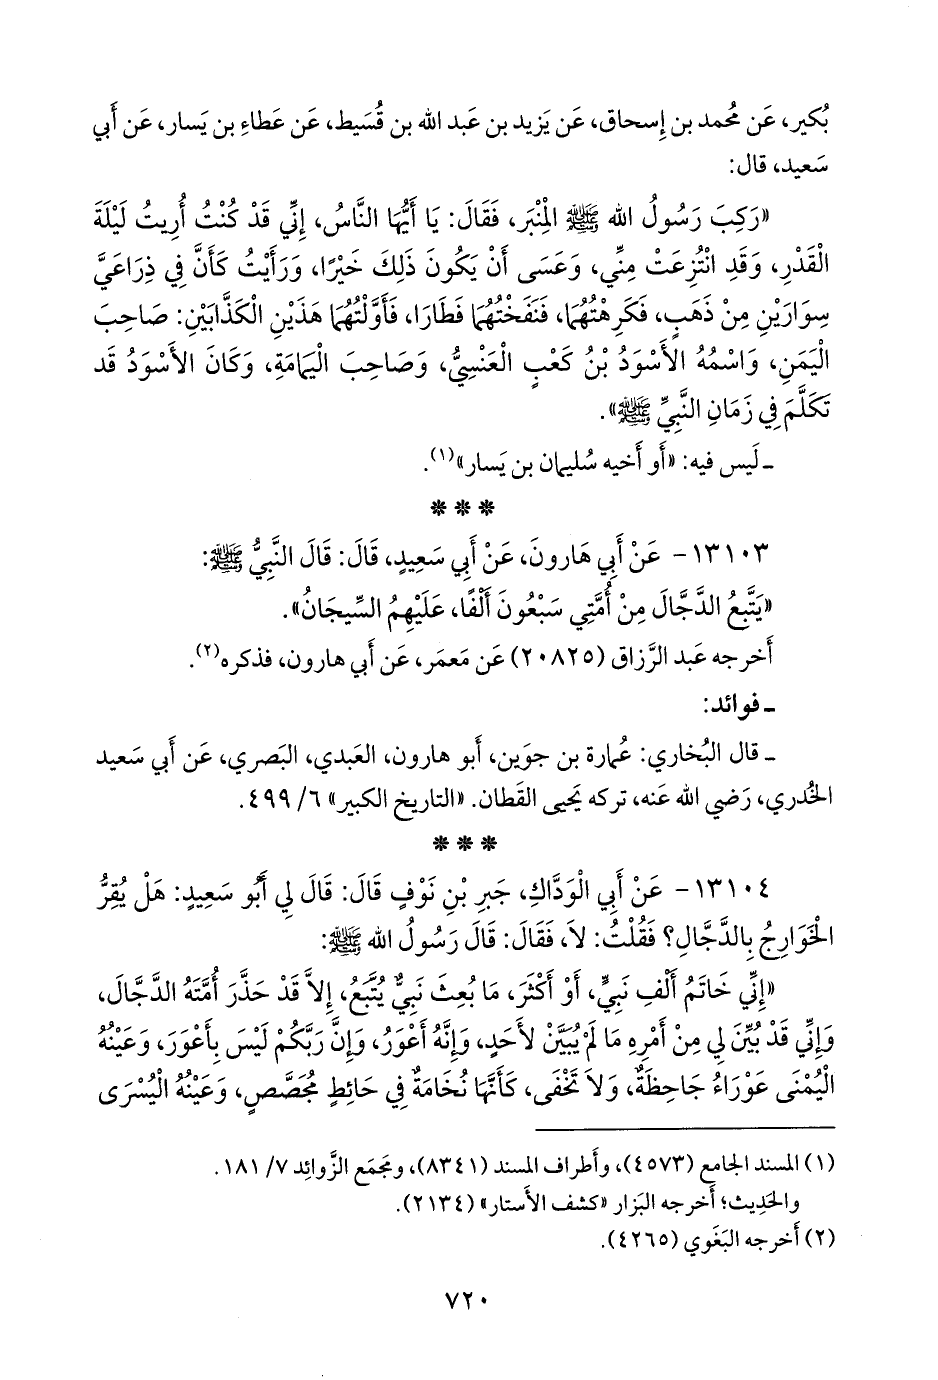 بُكير، عَن مُحمد بن إِسحاق، عَن يَزيد بن عَبد الله بن قُسَيط، عَن عَطاءِ بن يَسار، عَن أَبي
سَعيد، قال:
«رَكِبَ رَسُولُ الله ﷺ المِنْبَر، فَقَالَ: يَا أَيُّهَا النَّاسُ، إِنِّي قَدْ كُنْتُ أُرِيتُ لَيْلَةَ
الْقَدْرِ، وَقَدِ انْتُزِعَتْ مِنِّي، وَعَسَى أَنْ يَكُونَ ذَلِكَ خَيْرًا، وَرَأَيْتُ كَأَنَّ فِي ذِرَاعَيَّ
سِوَارَيْنِ مِنْ ذَهَبٍ، فَكَرِهْتُهُمَا، فَنَفَخْتُهُمَا فَطَارَا، فَأَوَّلْتُهُمَا هَذَيْنِ الْكَذَّابَيْنِ: صَاحِبَ
الْيَمَنِ، وَاسْمُهُ الأَسْوَدُ بْنُ كَعْبٍ الْعَنْسِيُّ، وَصَاحِبَ الْيَمَامَةِ، وَكَانَ الأَسْوَدُ قَد
تَكَلَّمَ فِي زَمَانِ النَّبِيِّ ﷺ».
ـ لَيس فيه: «أَو أَخيه سُليمان بن يَسار»(١).
* * *
١٣١٠٣ - عَنْ أَبِي هَارونَ، عَنْ أَبِي سَعِيدٍ، قَالَ: قَالَ النَّبِيُّ ﷺ:
«يَتَّبِعُ الدَّجَّالَ مِنْ أُمَّتِي سَبْعُونَ أَلْفًا، عَلَيْهِمُ السِّيجَانُ».
أَخرجه عَبد الرَّزاق (٢٠٨٢٥) عَن مَعمَر، عَن أَبي هارون، فذكره(٢).
ـ فوائد:
ـ قال البُخاري: عُمارة بن جوَين، أَبو هارون، العَبدي، البَصري، عَن أَبي سَعيد
الخُدري، رَضي الله عَنه، تركه يَحيى القَطان. «التاريخ الكبير» ٦/ ٤٩٩.
* * *
١٣١٠٤ - عَنْ أَبِي الْوَدَّاكِ، جَبرِ بْنِ نَوْفٍ قَالَ: قَالَ لِي أَبُو سَعِيدٍ: هَلْ يُقِرُّ
الْخَوَارِجُ بِالدَّجَّالِ؟ فَقُلْتُ: لاَ، فَقَالَ: قَالَ رَسُولُ الله ﷺ:
«إِنِّي خَاتَمُ أَلْفِ نَبِيٍّ، أَوْ أَكْثَرَ، مَا بُعِثَ نَبِيٌّ يُتَّبَعُ، إِلاَّ قَدْ حَذَّرَ أُمَّتَهُ الدَّجَّالَ،
وَإِنِّي قَدْ بُيِّنَ لِي مِنْ أَمْرِهِ مَا لَمْ يُبَيَّنْ لأَحَدٍ، وَإِنَّهُ أَعْوَرُ، وَإِنَّ رَبَّكُمْ لَيْسَ بِأَعْوَرَ، وَعَيْنُهُ
الْيُمْنَى عَوْرَاءُ جَاحِظَةٌ، وَلاَ تَخْفَى، كَأَنَّهَا نُخَامَةٌ فِي حَائِطٍ مُجَصَّصٍ، وَعَيْنُهُ الْيُسْرَى
(١) المسند الجامع (٤٥٧٣)، وأَطراف المسند (٨٣٤١)، ومَجمَع الزَّوائِد ٧/ ١٨١.
والحَدِيث؛ أَخرجه البَزار «كشف الأَستار» (٢١٣٤).
(٢) أَخرجه البَغَوي (٤٢٦٥).
٧٢٠